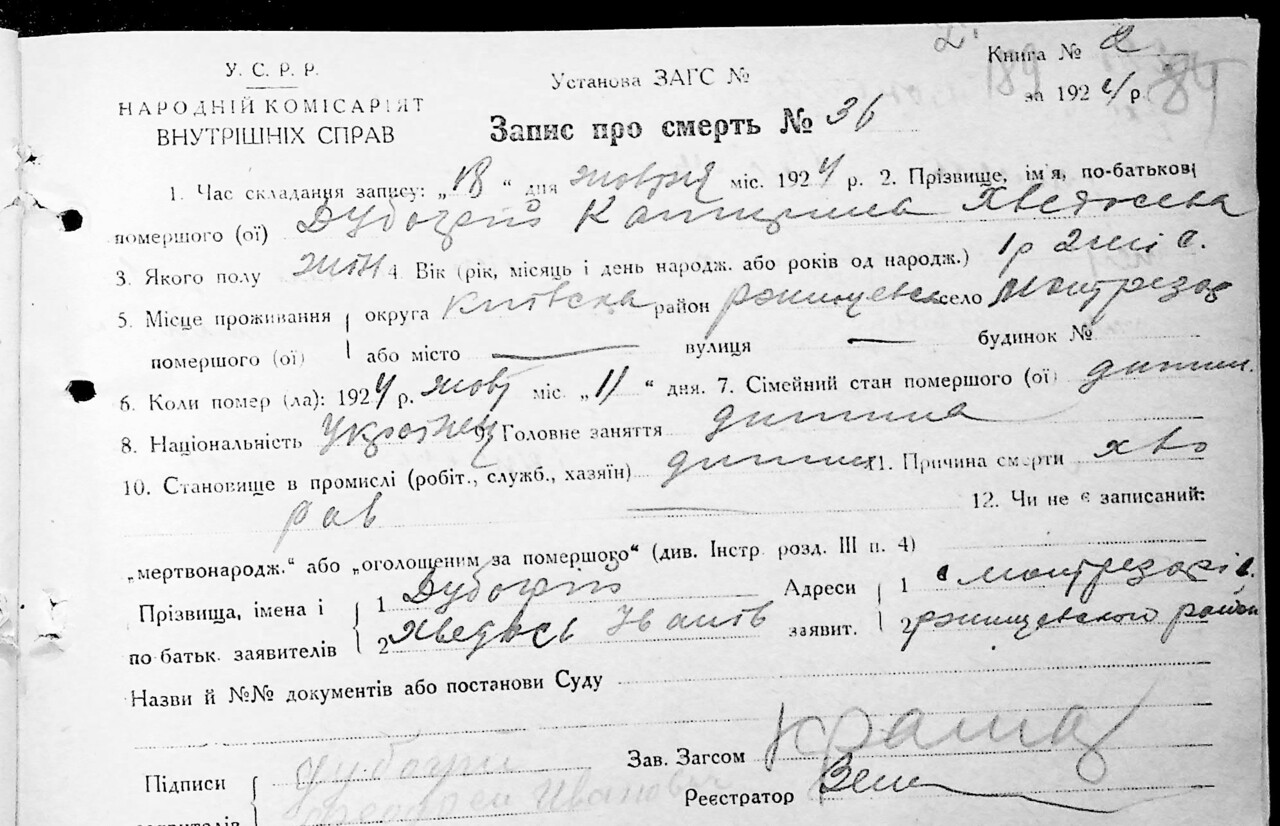 2
У. С. Р. Р.
НАРОДНІЙ КОМІСАРІЯТ
ВНУТРІШНІХ СПРАВ
Установа ЗАГС №
Книга № 2
189
за 1924 р.
Запис про смерть № 36
1. Час складання запису: „18“ дня жовтня міс. 1924 р. 2. Прізвище, ім'я, по-батькові
помершого (ої) Катерина Хведосєва
3. Якого полу жін 4. Вік (рік, місяць і день народж. або років од народж.) 1 р 2 міс.
5. Місце проживання округа Київска район ржищевск село
помершого (ої) або місто — вулиця — будинок №
6. Коли помер (ла): 1924 р. жовт міс. „11“ дня. 7. Сімейний стан помершого (ої) дитин.
8. Національність Українец 9. Головне заняття дитина
10. Становище в промислі (робіт., служб., хазяїн) дитина 11. Причина смерти хво
рав — 12. Чи не є записаний:
„мертвонародж.“ або „оголошеним за помершого“ (див. Інстр. розд. III п. 4)
Прізвища, імена і 1 Адреси 1
по батьк. заявителів 2 Хведось Іванів заявит. 2 ржищевского район
Назви й №№ документів або постанови Суду
Зав. Загсом
Підписи
Іванович
Реєстратор
заявителів